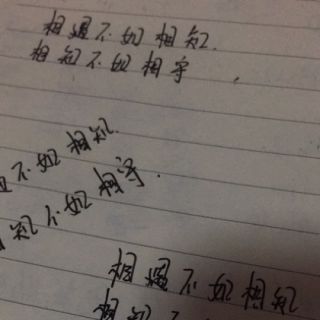 相遇不如相知.
相知不如相守,
不如相知
知不如相守.
相遇不如相知
相知不